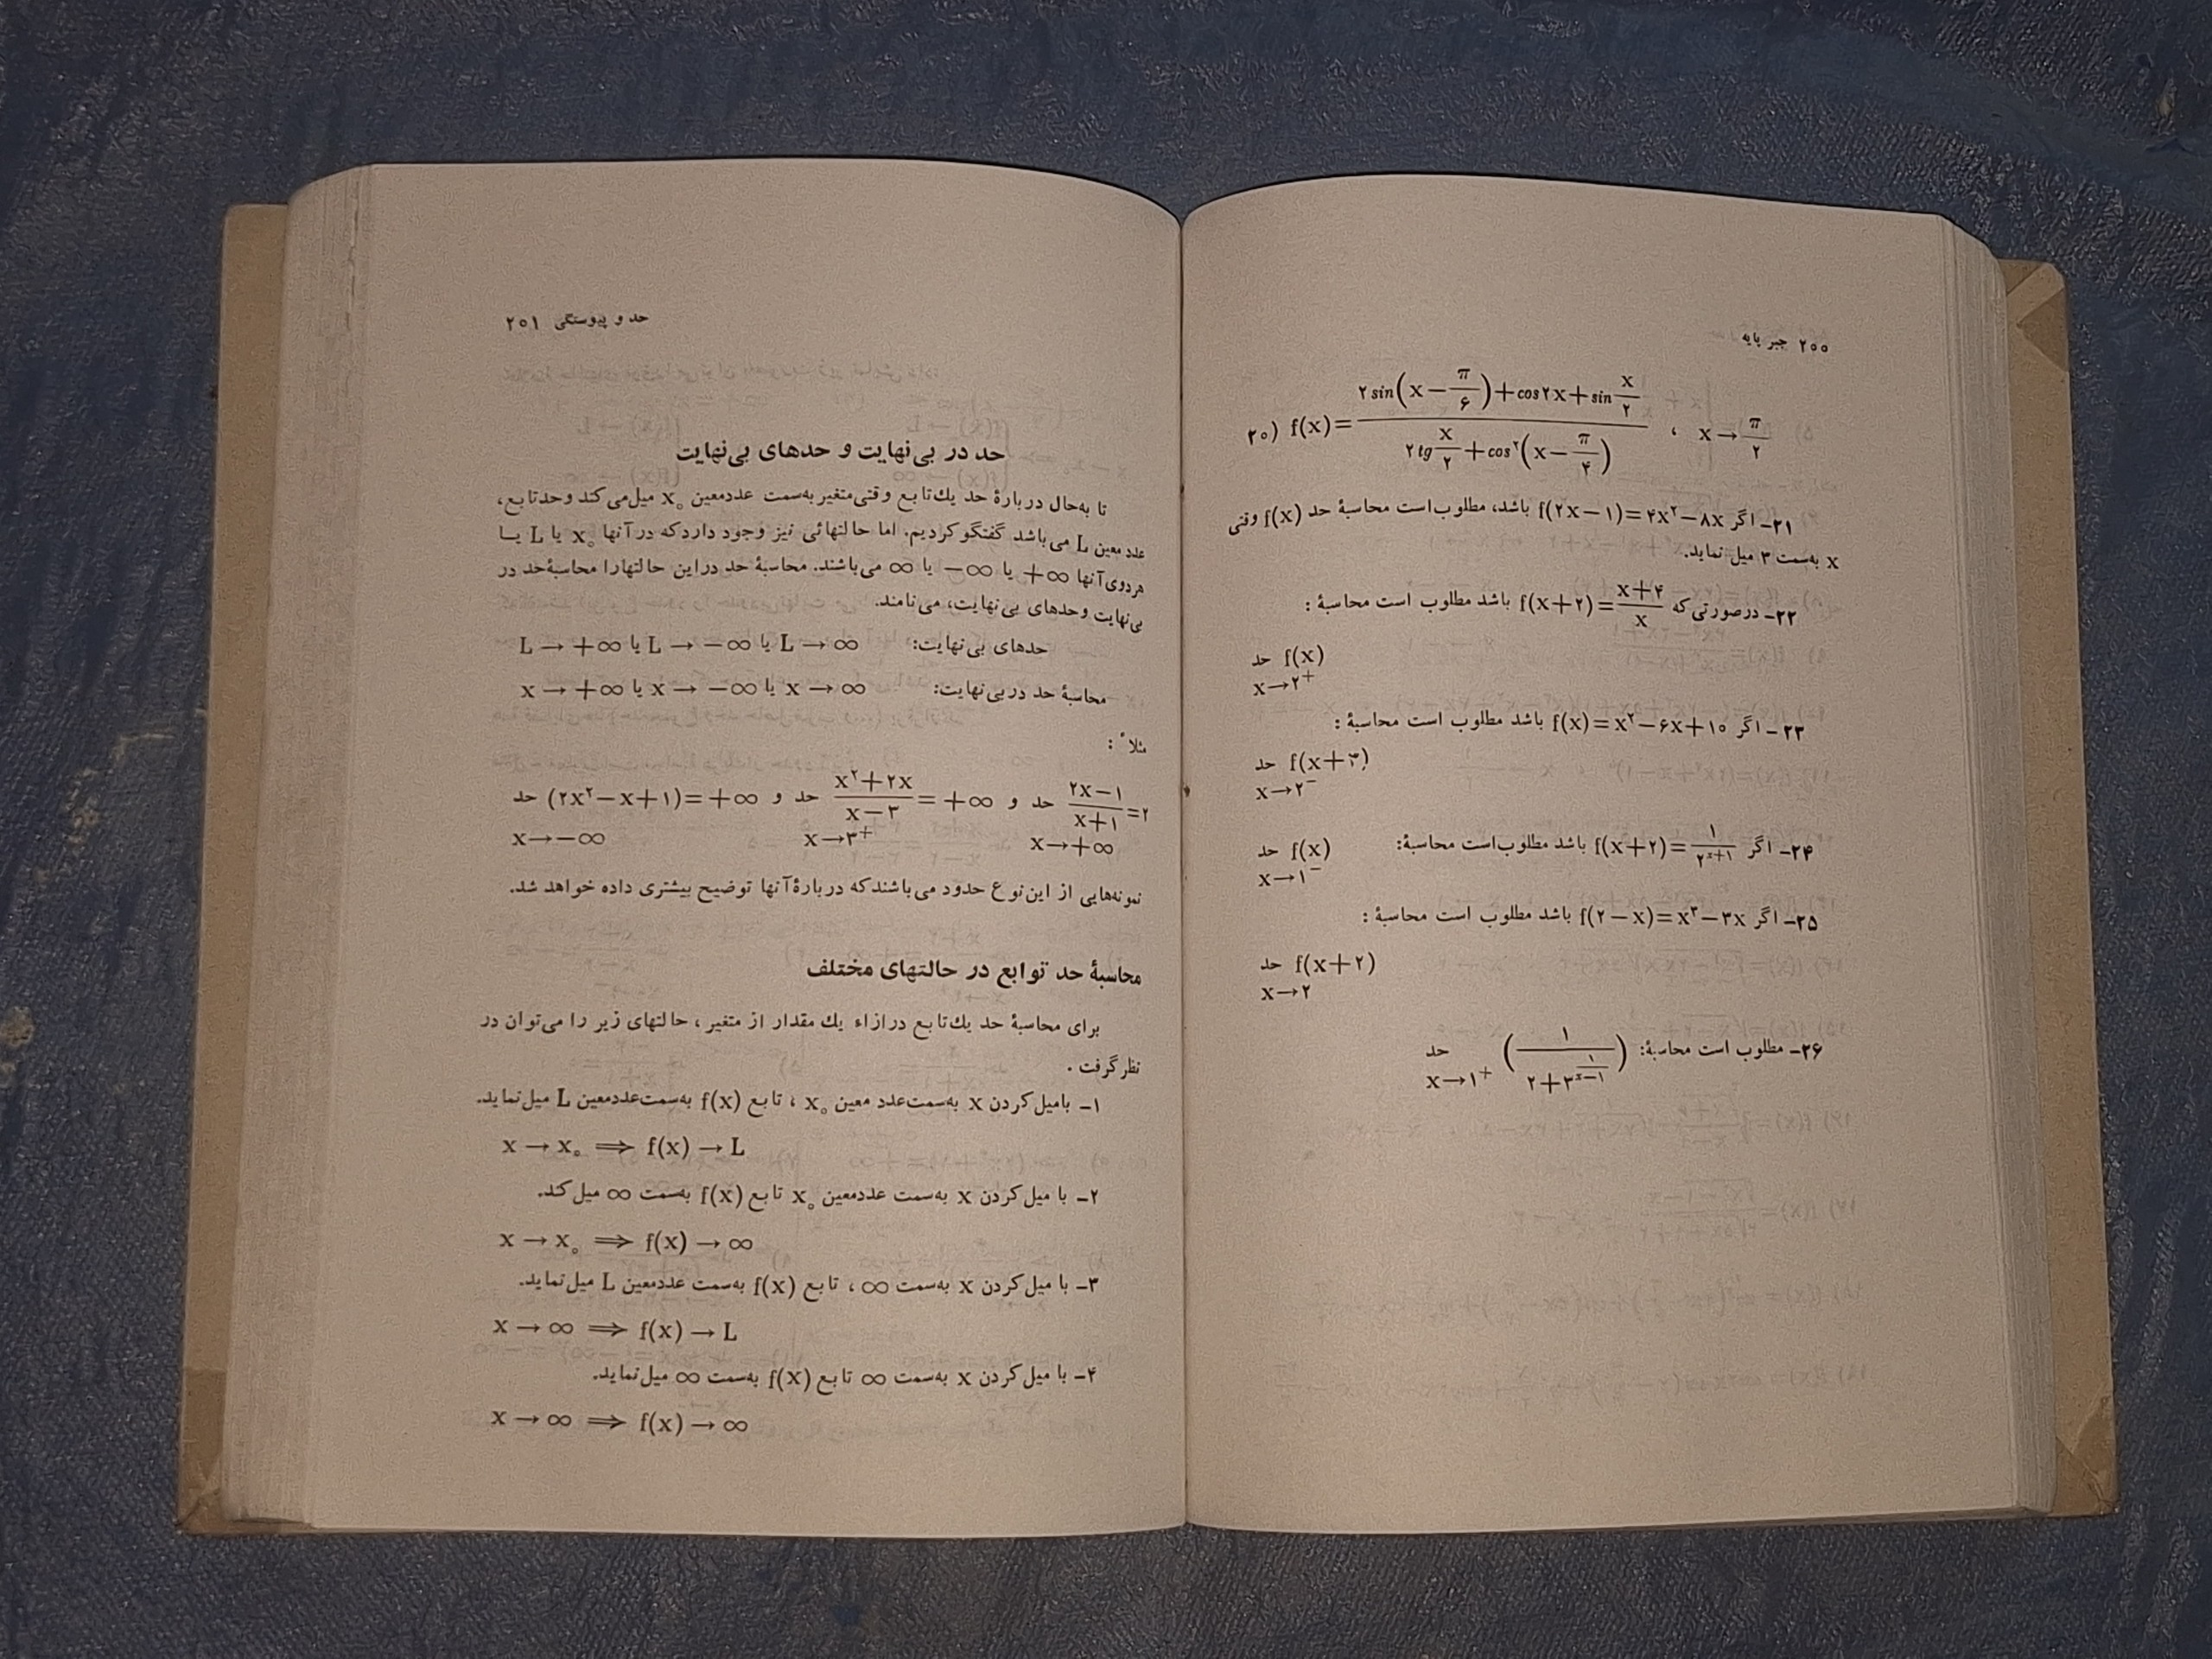 ۲۰۰ جبر پایه
۲۰) f(x)=(۲sin(x−π/۶)+cos۲x+sin x/۲)/(۲tg x/۲+cos²(x−π/۴)) ، x→π/۲
۲۱– اگر f(۲x−۱)=۴x²−۸x باشد، مطلوب است محاسبهٔ حد f(x) وقتی
x به‌سمت ۳ میل نماید.
۲۲– درصورتی‌که f(x+۲)=(x+۴)/x باشد مطلوب است محاسبهٔ :
حد f(x)
x→۲⁺
۲۳– اگر f(x)=x²−۶x+۱۰ باشد مطلوب است محاسبهٔ :
حد f(x+۳)
x→۲⁻
۲۴– اگر f(x+۲)=۱/۲ˣ⁺¹ باشد مطلوب‌است محاسبهٔ:
حد f(x)
x→۱⁻
۲۵– اگر f(۲−x)=x³−۳x باشد مطلوب است محاسبهٔ :
حد f(x+۲)
x→۲
۲۶– مطلوب است محاسبهٔ: حد (۱/(۲+۳^(۱/(x−۱))))
x→۱⁺
حد و پیوستگی ۲۰۱
حد در بی‌نهایت و حدهای بی‌نهایت
تا به‌حال دربارهٔ حد یك‌تابع وقتی‌متغیر به‌سمت عددمعین x₀ میل‌می‌کند وحدتابع،
عدد معین L می‌باشد گفتگو کردیم. اما حالتهائی نیز وجود داردکه در آنها x₀ یا L یا
هردوی‌آنها ∞+ یا ∞− یا ∞ می‌باشند. محاسبهٔ حد دراین حالتهارا محاسبهٔ‌حد در
بی‌نهایت وحدهای بی‌نهایت، می‌نامند.
حدهای بی‌نهایت: L→∞ یا L→−∞ یا L→+∞
محاسبهٔ حد دربی‌نهایت: x→∞ یا x→−∞ یا x→+∞
مثلاً :
حد (۲x²−x+۱)=+∞ و حد (x²+۲x)/(x−۳)=+∞ و حد (۲x−۱)/(x+۱)=۲
x→−∞ x→۳⁺ x→+∞
نمونه‌هایی از این‌نوع حدود می‌باشندکه دربارهٔ‌آنها توضیح بیشتری داده خواهد شد.
محاسبهٔ حد توابع در حالتهای مختلف
برای محاسبهٔ حد یك‌تابع درازاء یك مقدار از متغیر ، حالتهای زیر را می‌توان در
نظر گرفت .
۱– بامیل‌کردن x به‌سمت‌عدد معین x₀ ، تابع f(x) به‌سمت‌عددمعین L میل‌نماید.
x→x₀ ⟹ f(x)→L
۲– با میل‌کردن x به‌سمت عددمعین x₀ تابع f(x) به‌سمت ∞ میل‌کند.
x→x₀ ⟹ f(x)→∞
۳– با میل‌کردن x به‌سمت ∞ ، تابع f(x) به‌سمت عددمعین L میل‌نماید.
x→∞ ⟹ f(x)→L
۴– با میل‌کردن x به‌سمت ∞ تابع f(x) به‌سمت ∞ میل‌نماید.
x→∞ ⟹ f(x)→∞